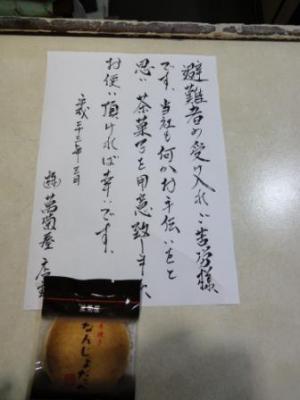 避難者の受け入れご苦労様
です。当社も何かお手伝いをと
思い茶菓子を用意致しました
お使い頂ければ幸いです。
平成二十三年三月
萬菊屋 店主
なんじょだべ